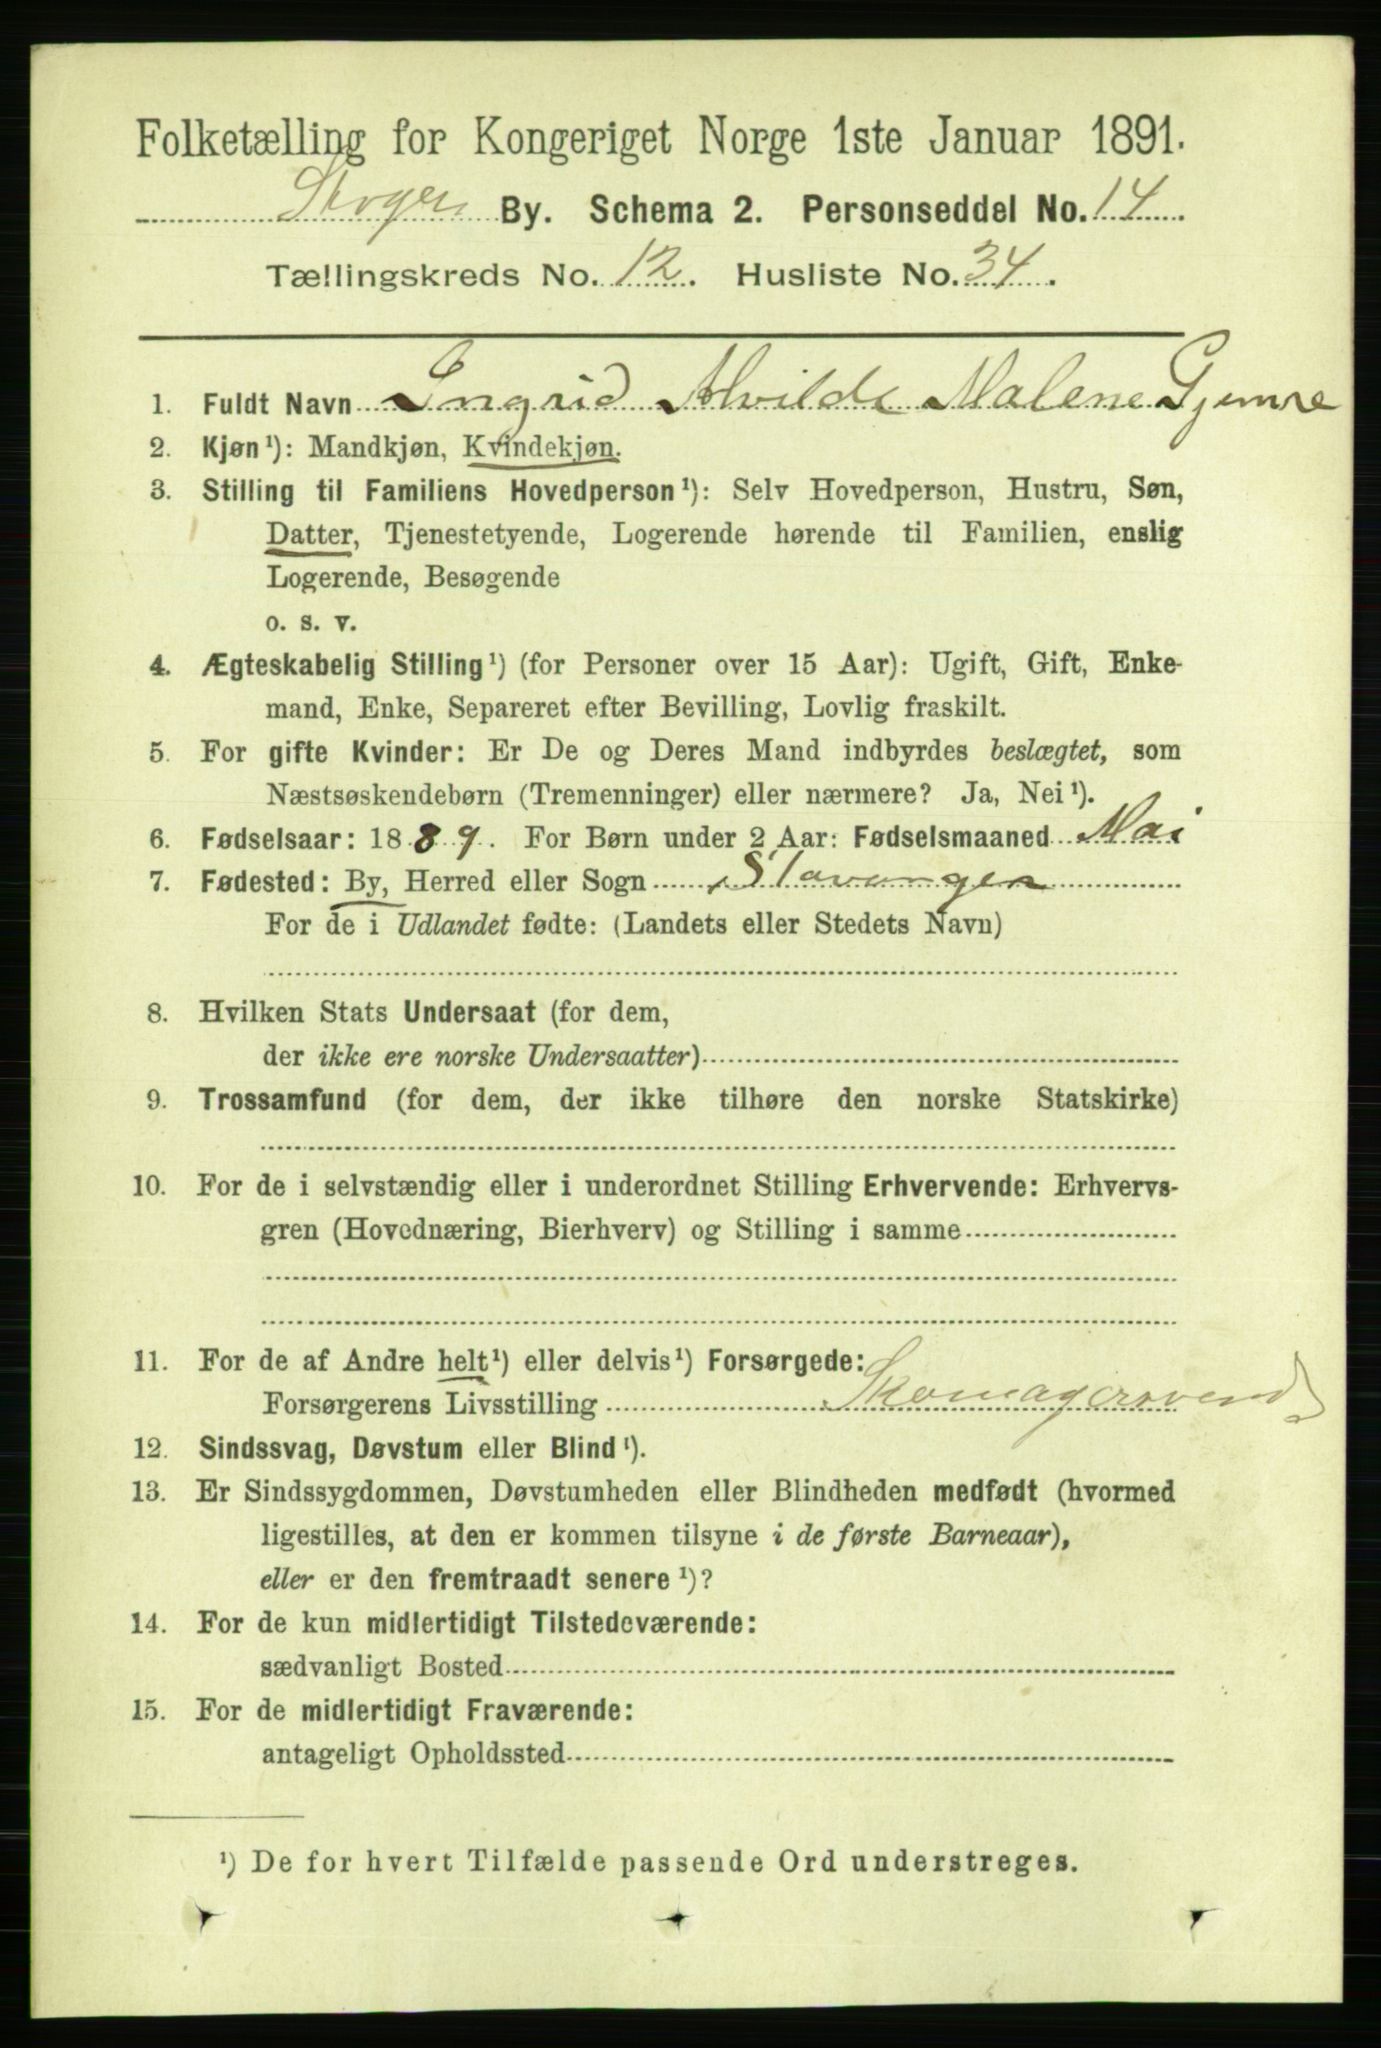 Folketælling for Kongeriget Norge 1ste Januar 1891.
By. Schema 2. Personseddel No. 14
Tællingskreds No. 12. Husliste No. 34.
1. Fuldt Navn Ingrid Alvilde Malene Gjemre
2. Kjøn¹): Mandkjøn, Kvindekjøn.
3. Stilling til Familiens Hovedperson¹): Selv Hovedperson, Hustru, Søn,
Datter, Tjenestetyende, Logerende hørende til Familien, enslig
Logerende, Besøgende
o. s. v.
4. Ægteskabelig Stilling¹) (for Personer over 15 Aar): Ugift, Gift, Enke-
mand, Enke, Separeret efter Bevilling, Lovlig fraskilt.
5. For gifte Kvinder: Er De og Deres Mand indbyrdes beslægtet, som
Næstsøskendebørn (Tremenninger) eller nærmere? Ja, Nei¹).
6. Fødselsaar: 1889. For Børn under 2 Aar: Fødselsmaaned Mai
7. Fødested: By, Herred eller Sogn Stavanger
For de i Udlandet fødte: (Landets eller Stedets Navn)
8. Hvilken Stats Undersaat (for dem,
der ikke ere norske Undersaatter)
9. Trossamfund (for dem, der ikke tilhøre den norske Statskirke)
10. For de i selvstændig eller i underordnet Stilling Erhvervende: Erhvervs-
gren (Hovednæring, Bierhverv) og Stilling i samme
11. For de af Andre helt¹) eller delvis¹) Forsørgede:
Forsørgerens Livsstilling Skomagersvend
12. Sindssvag, Døvstum eller Blind¹).
13. Er Sindssygdommen, Døvstumheden eller Blindheden medfødt (hvormed
ligestilles, at den er kommen tilsyne i de første Barneaar),
eller er den fremtraadt senere¹)?
14. For de kun midlertidigt Tilstedeværende:
sædvanligt Bosted
15. For de midlertidigt Fraværende:
antageligt Opholdssted
¹) De for hvert Tilfælde passende Ord understreges.